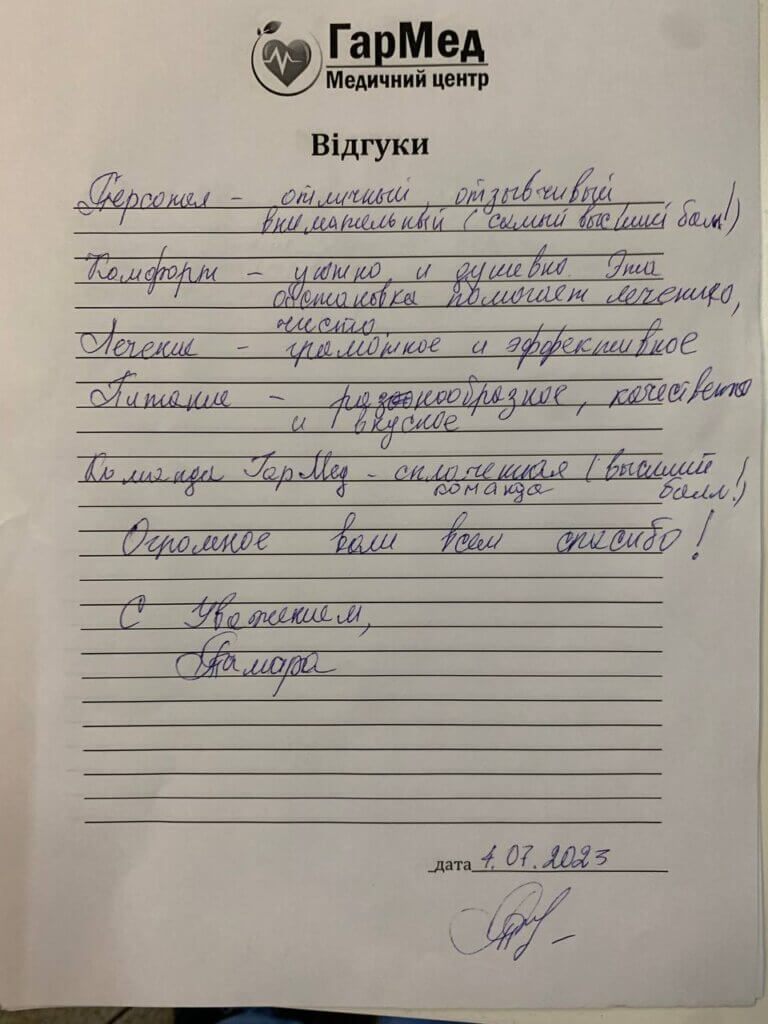 ГарМед
Медичний центр
Відгуки
Персонал – отличный, отзывчивый
внимательный (самый высший балл!)
Комфорт – уютно и душевно. Эта
обстановка помогает лечению,
чисто
Лечение – грамотное и эффективное
Питание – разнообразное, качественно
и вкусное
Команда ГарМед – сплоченная (высший
команда балл!)
Огромное вам всем спасибо!
С Уважением,
Тамара
дата 4.07.2023